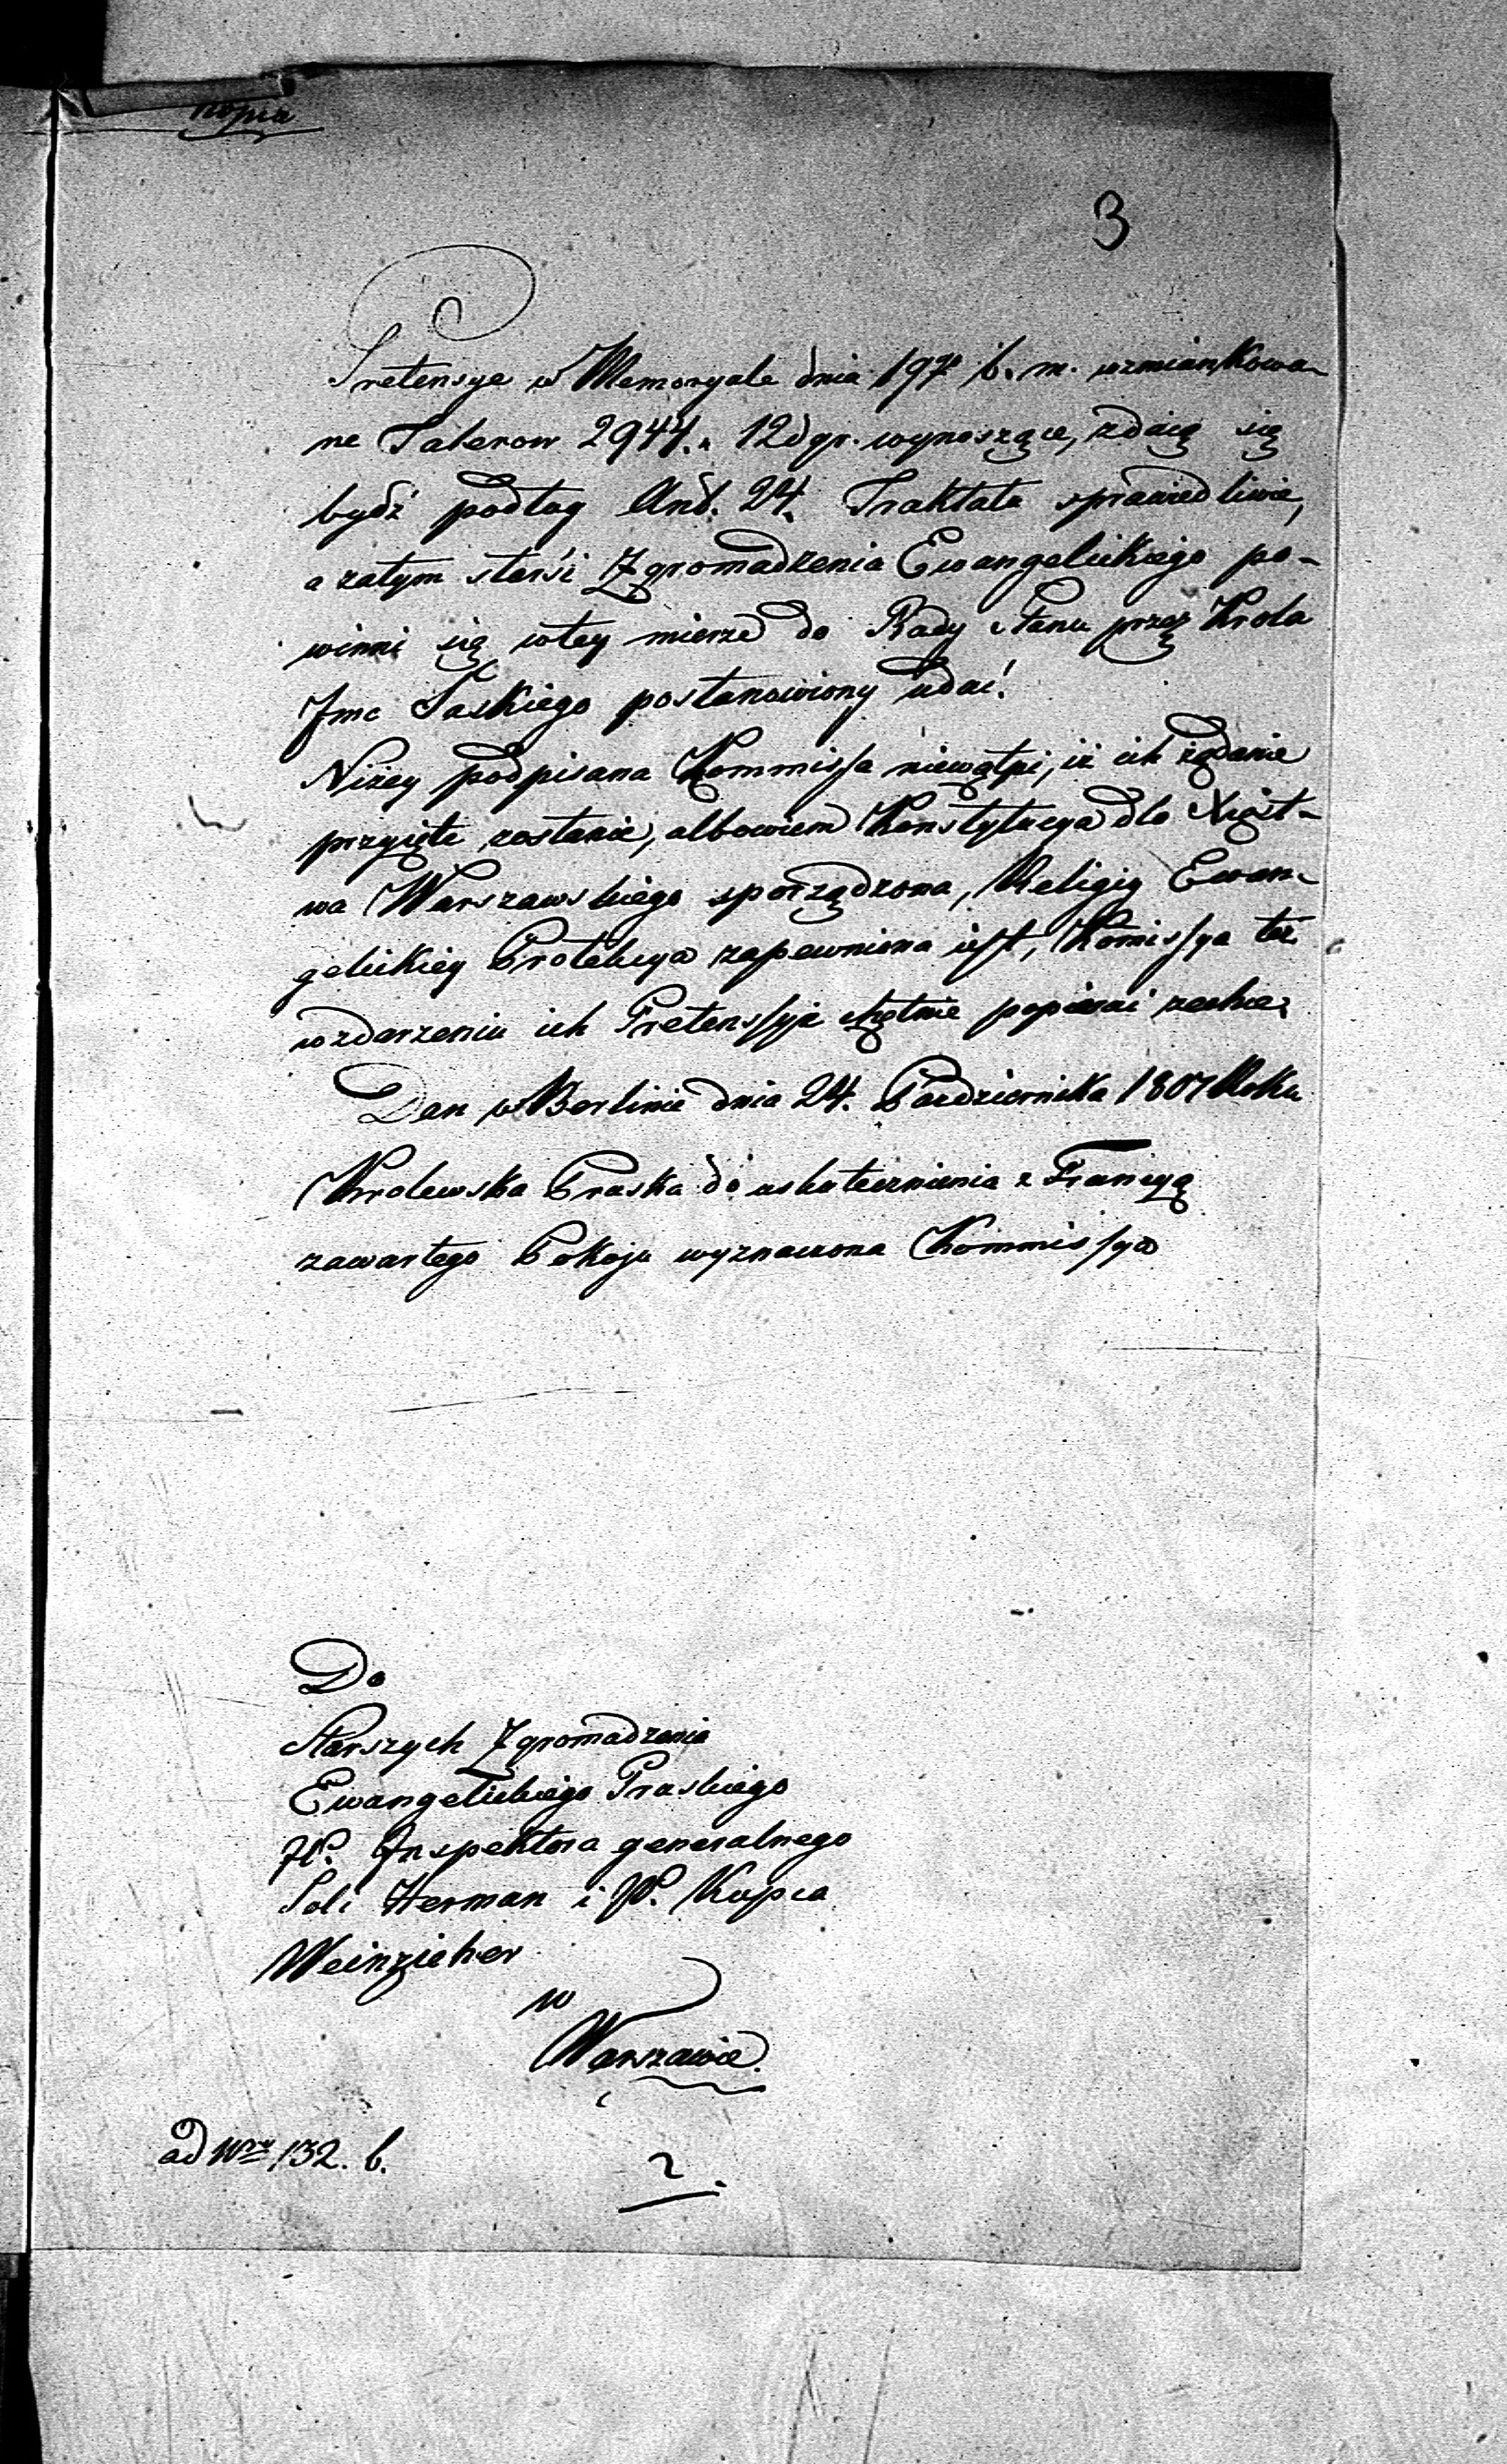 Kopia
3
Pretensye w Memoryale dnia 19go b. m. wzmiankowa-
ne Talerow 2944. 12 dgr. wynoszące, zdaią się
bydź podług Art. 24. Traktatu sprawiedliwie,
a zatym starsi Zgromadzenia Ewangelickiego po-
winni się wtey mierze do Rady Stanu przez Krola
Jmc Saskiego postanowiony udać.
Niżey podpisana Kommissa niewątpi, iż ich żądanie
przyięte zostanie, albowiem Konstytucya dla Xięst-
wa Warszawskiego sporządzona, Religiy Ewan-
gelickiey Protekcya zapewniona iest, Komissya też
wzdarzeniu ich Pretenssyje chętnie popierać zechce.
Dan w Berlinie dnia 24. Pazdziernika 1807 Roku
Krolewska Pruska do uskutecznienia z Francyą
zawartego Pokoju wyznaczona Kommissya
Do
Starszych Zgromadzenia
Ewangelickiego Pruskiego
JP. Inspektora generalnego
Soli Herman i JP. Kupca
Weinzieher
w
Warszawie.
ad Nru 132. b.
2.